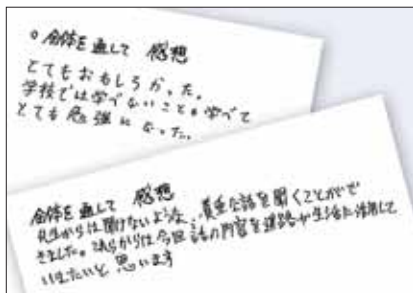 ○全体を通して 感想
とてもおもしろかった。
学校では学べないこと。学べて
とても勉強になった。
全体を通して 感想
先生からは聞けないような、貴重な話を聞くことがで
きました。これからは今回、話の内容を進路や生活に活用して
いきたいと思います